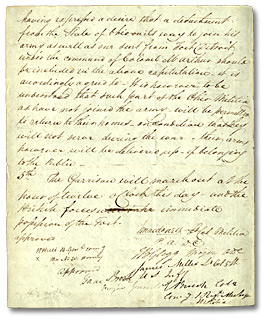 having expressed a desire that a detachment
from the State of Ohio on its way to join his
army as well as one sent from Fort Detroit
under the command of Colonel McArthur should
be included in the above capitulation it is
accordingly agreed to. It is however to be
understood that such part of the Ohio Militia
as have not joined the army will be permitted
to return to their homes on condition that they
will not serve during the war. Their arms
however will be delivered up if belonging
to the Public
5th The Garrison will march out at the
hour of twelve o'clock this day and the
British forces immediate
possession of the Fort.
approved
approved
Isaac Brock
James Miller Lt Col 5th
E Brush Col